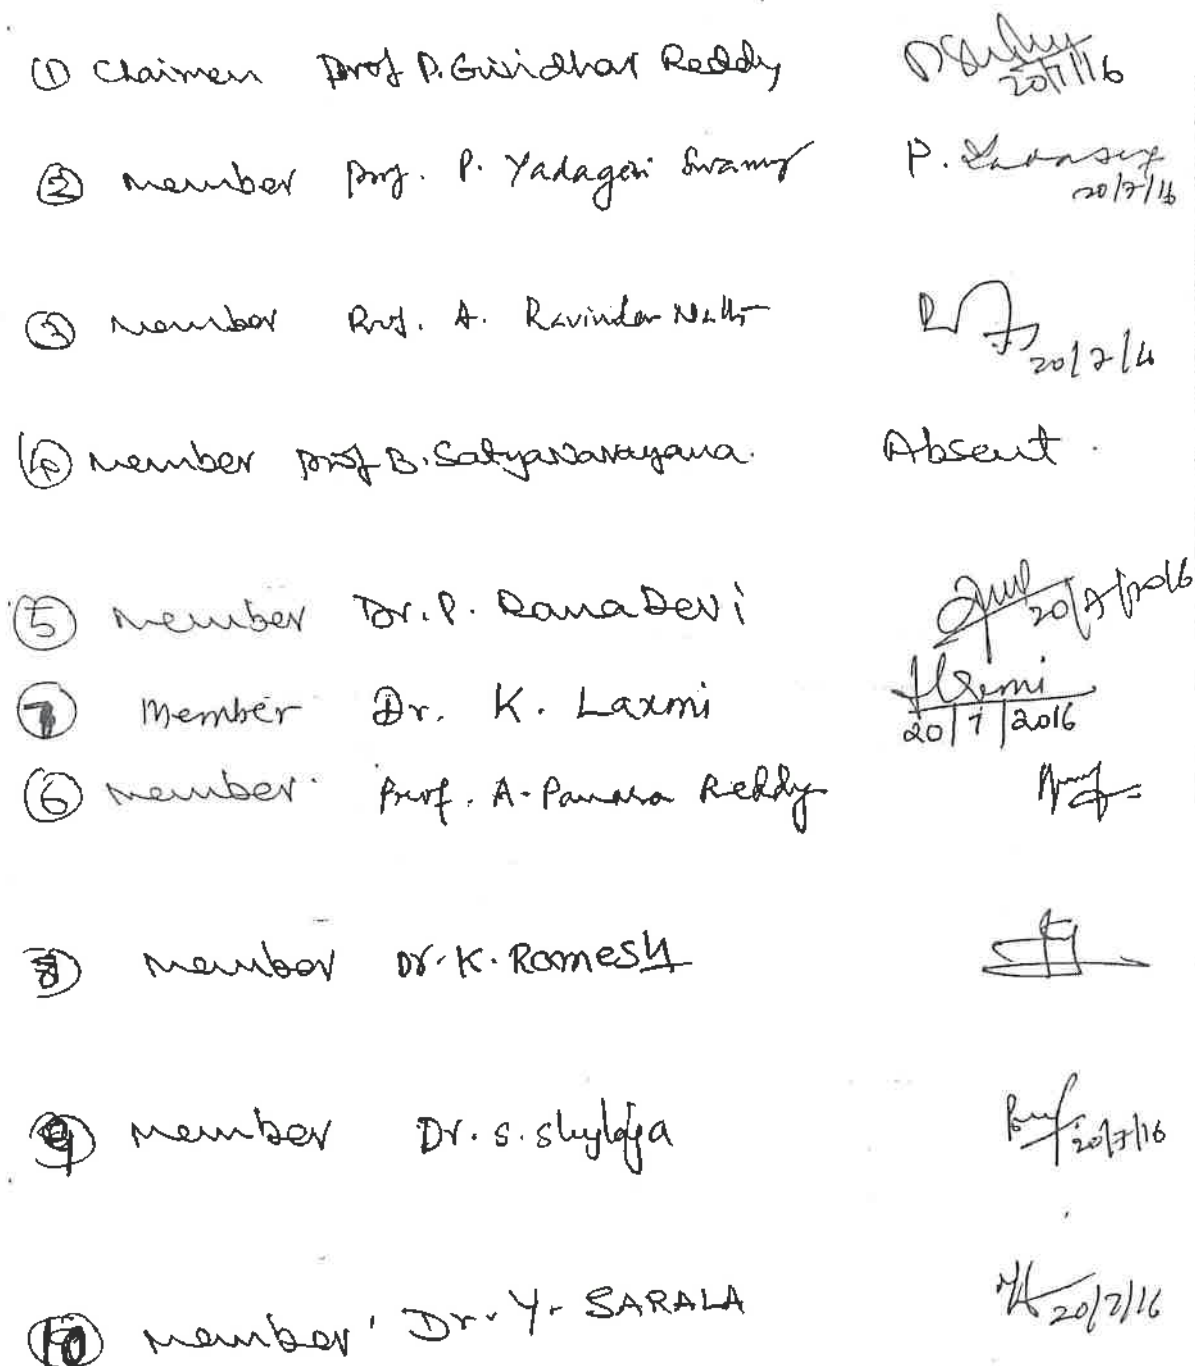 ① Chairman Prof D. Giridhar Reddy 20/7/16
② Member Prof. P. Yadagiri Swamy P. 20/7/16
③ Member Prof. A. Ravinder Nath 20/7/16
④ Member Prof B. Satyanarayana. Absent.
⑤ Member Dr. P. Rama Devi 20/7/2016
⑦ Member Dr. K. Laxmi 20/7/2016
⑥ Member Prof. A. Reddy
⑧ Member Dr. K. Ramesh
⑨ Member Dr. S. Shylaja 20/7/16
⑩ Member Dr. Y. SARALA 20/7/16